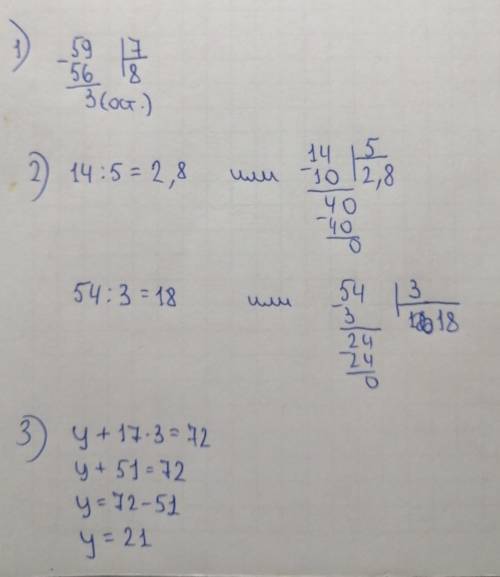 1) -59 | 7
56 | 8
3 (ост.)
2) 14 : 5 = 2,8 или 14 | 5
-10 | 2,8
40
-40
0
54 : 3 = 18 или -54 | 3
3 | 18
24
-24
0
3) y + 17 · 3 = 72
y + 51 = 72
y = 72 - 51
y = 21